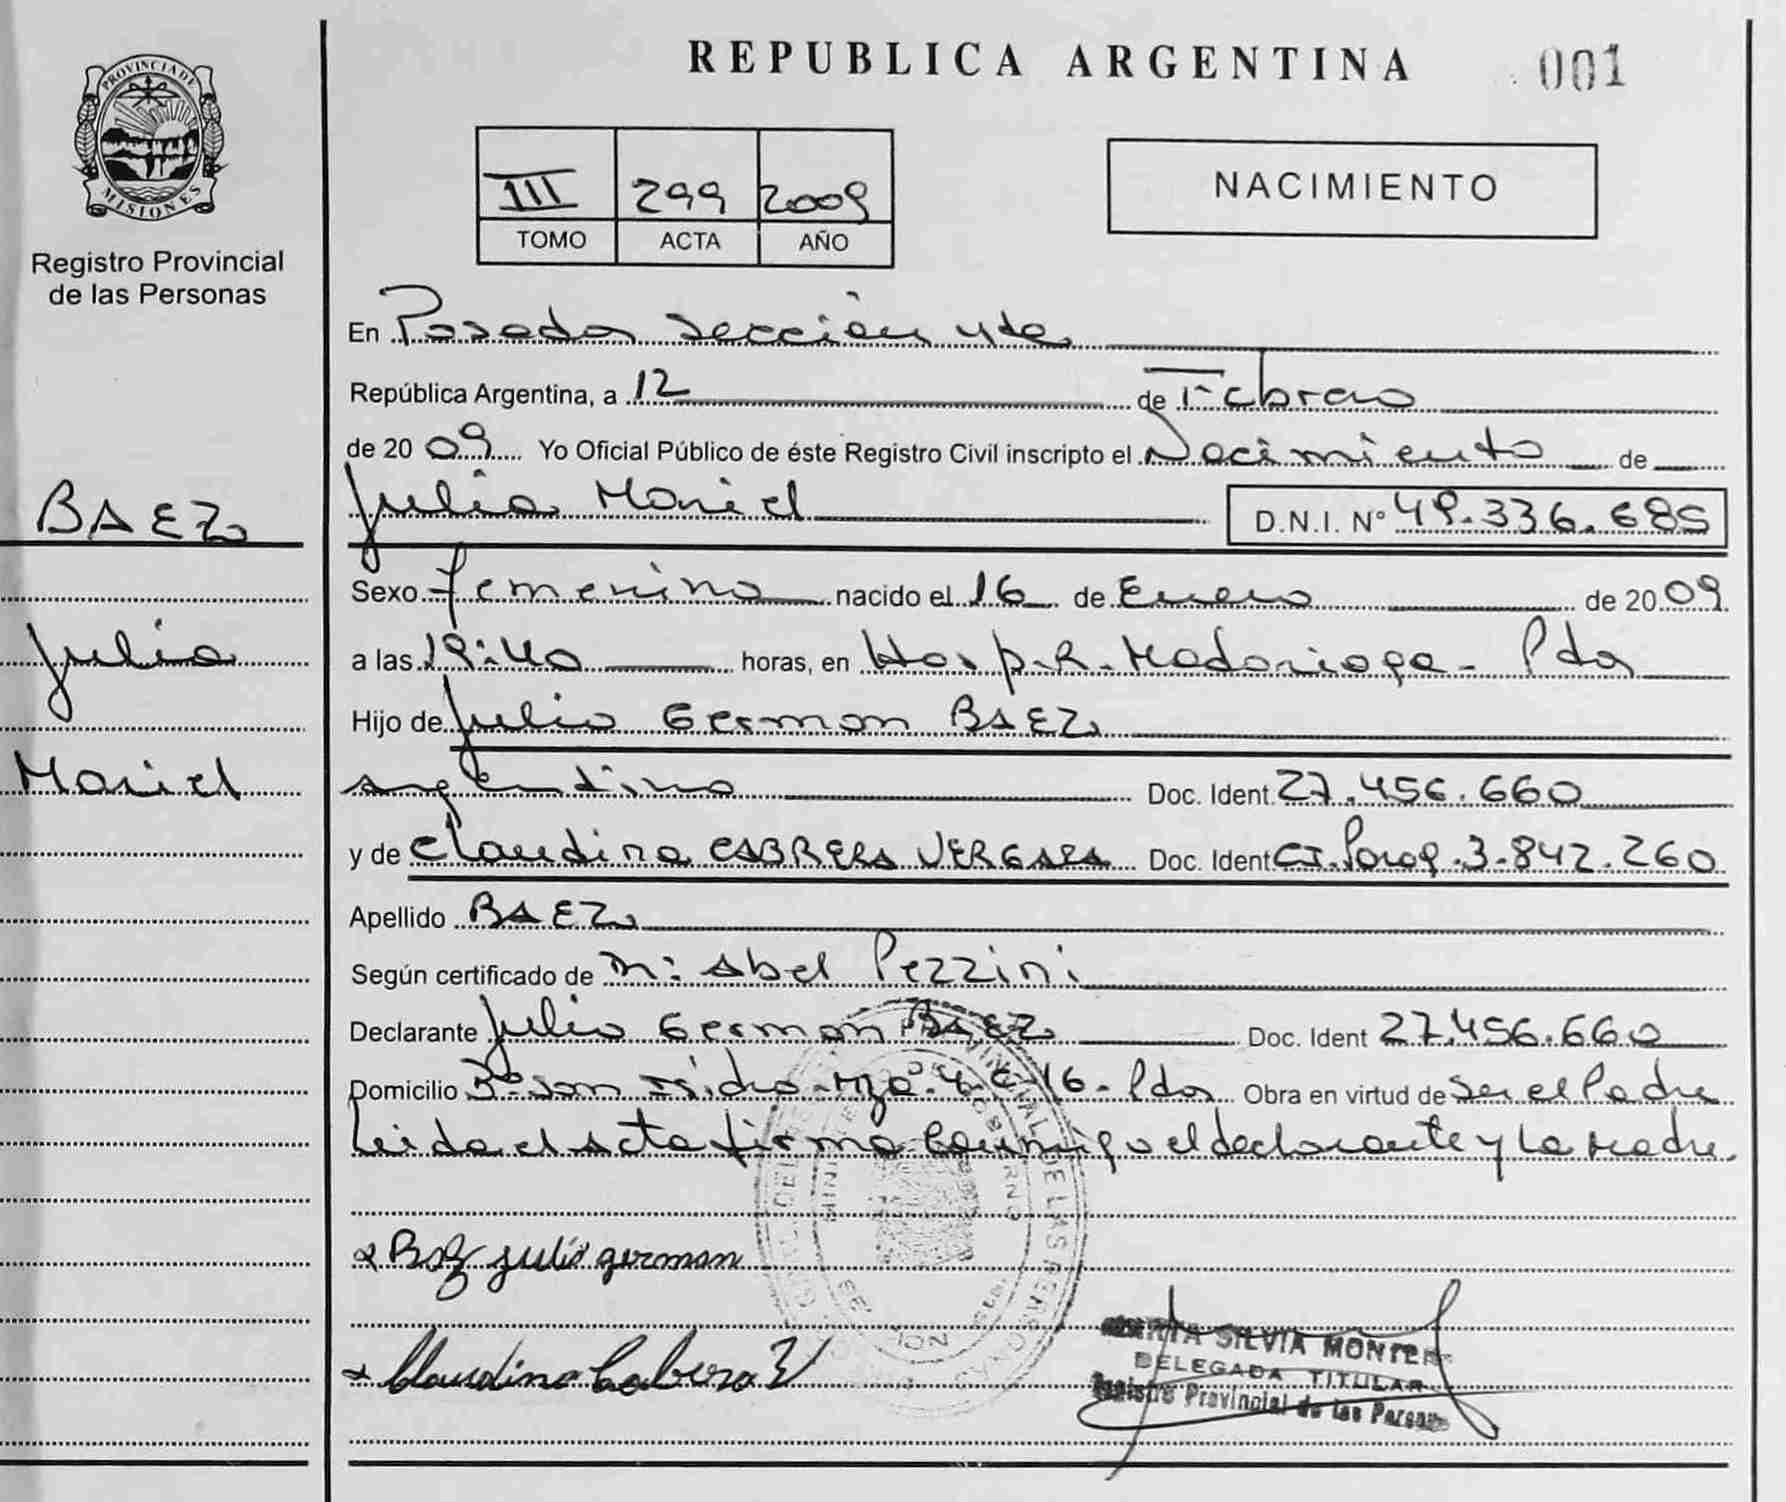 REPUBLICA ARGENTINA
001
PROVINCIA DE
MISIONES
Registro Provincial
de las Personas
III 299 2009
TOMO ACTA AÑO
NACIMIENTO
En Posadas sección 4ta
República Argentina, a 12 de Febrero
de 2009 Yo Oficial Público de éste Registro Civil inscripto el Nacimiento de
Julia Mariel D.N.I. Nº 49.336.685
BAEZ
Julia
Mariel
Sexo femenino nacido el 16 de Enero de 2009
a las 19:40 horas, en Hosp. R. Madariaga - Pdas
Hijo de Julio German BAEZ
argentino Doc. Ident. 27.456.660
y de Claudina CABRERA VERGARA Doc. Ident CI. Parag. 3.842.260
Apellido BAEZ
Según certificado de Abel Pezzini
Declarante Julio German BAEZ Doc. Ident 27.456.660
Domicilio Bº San Isidro - Mza 4 C 16 - Pdas Obra en virtud de Ser el Padre
Leida el acta firma conmigo el declarante y la Madre
Baez julio german
Claudina Cabrera V
SILVIA MONTE
DELEGADA TITULAR
Registro Provincial de las Personas